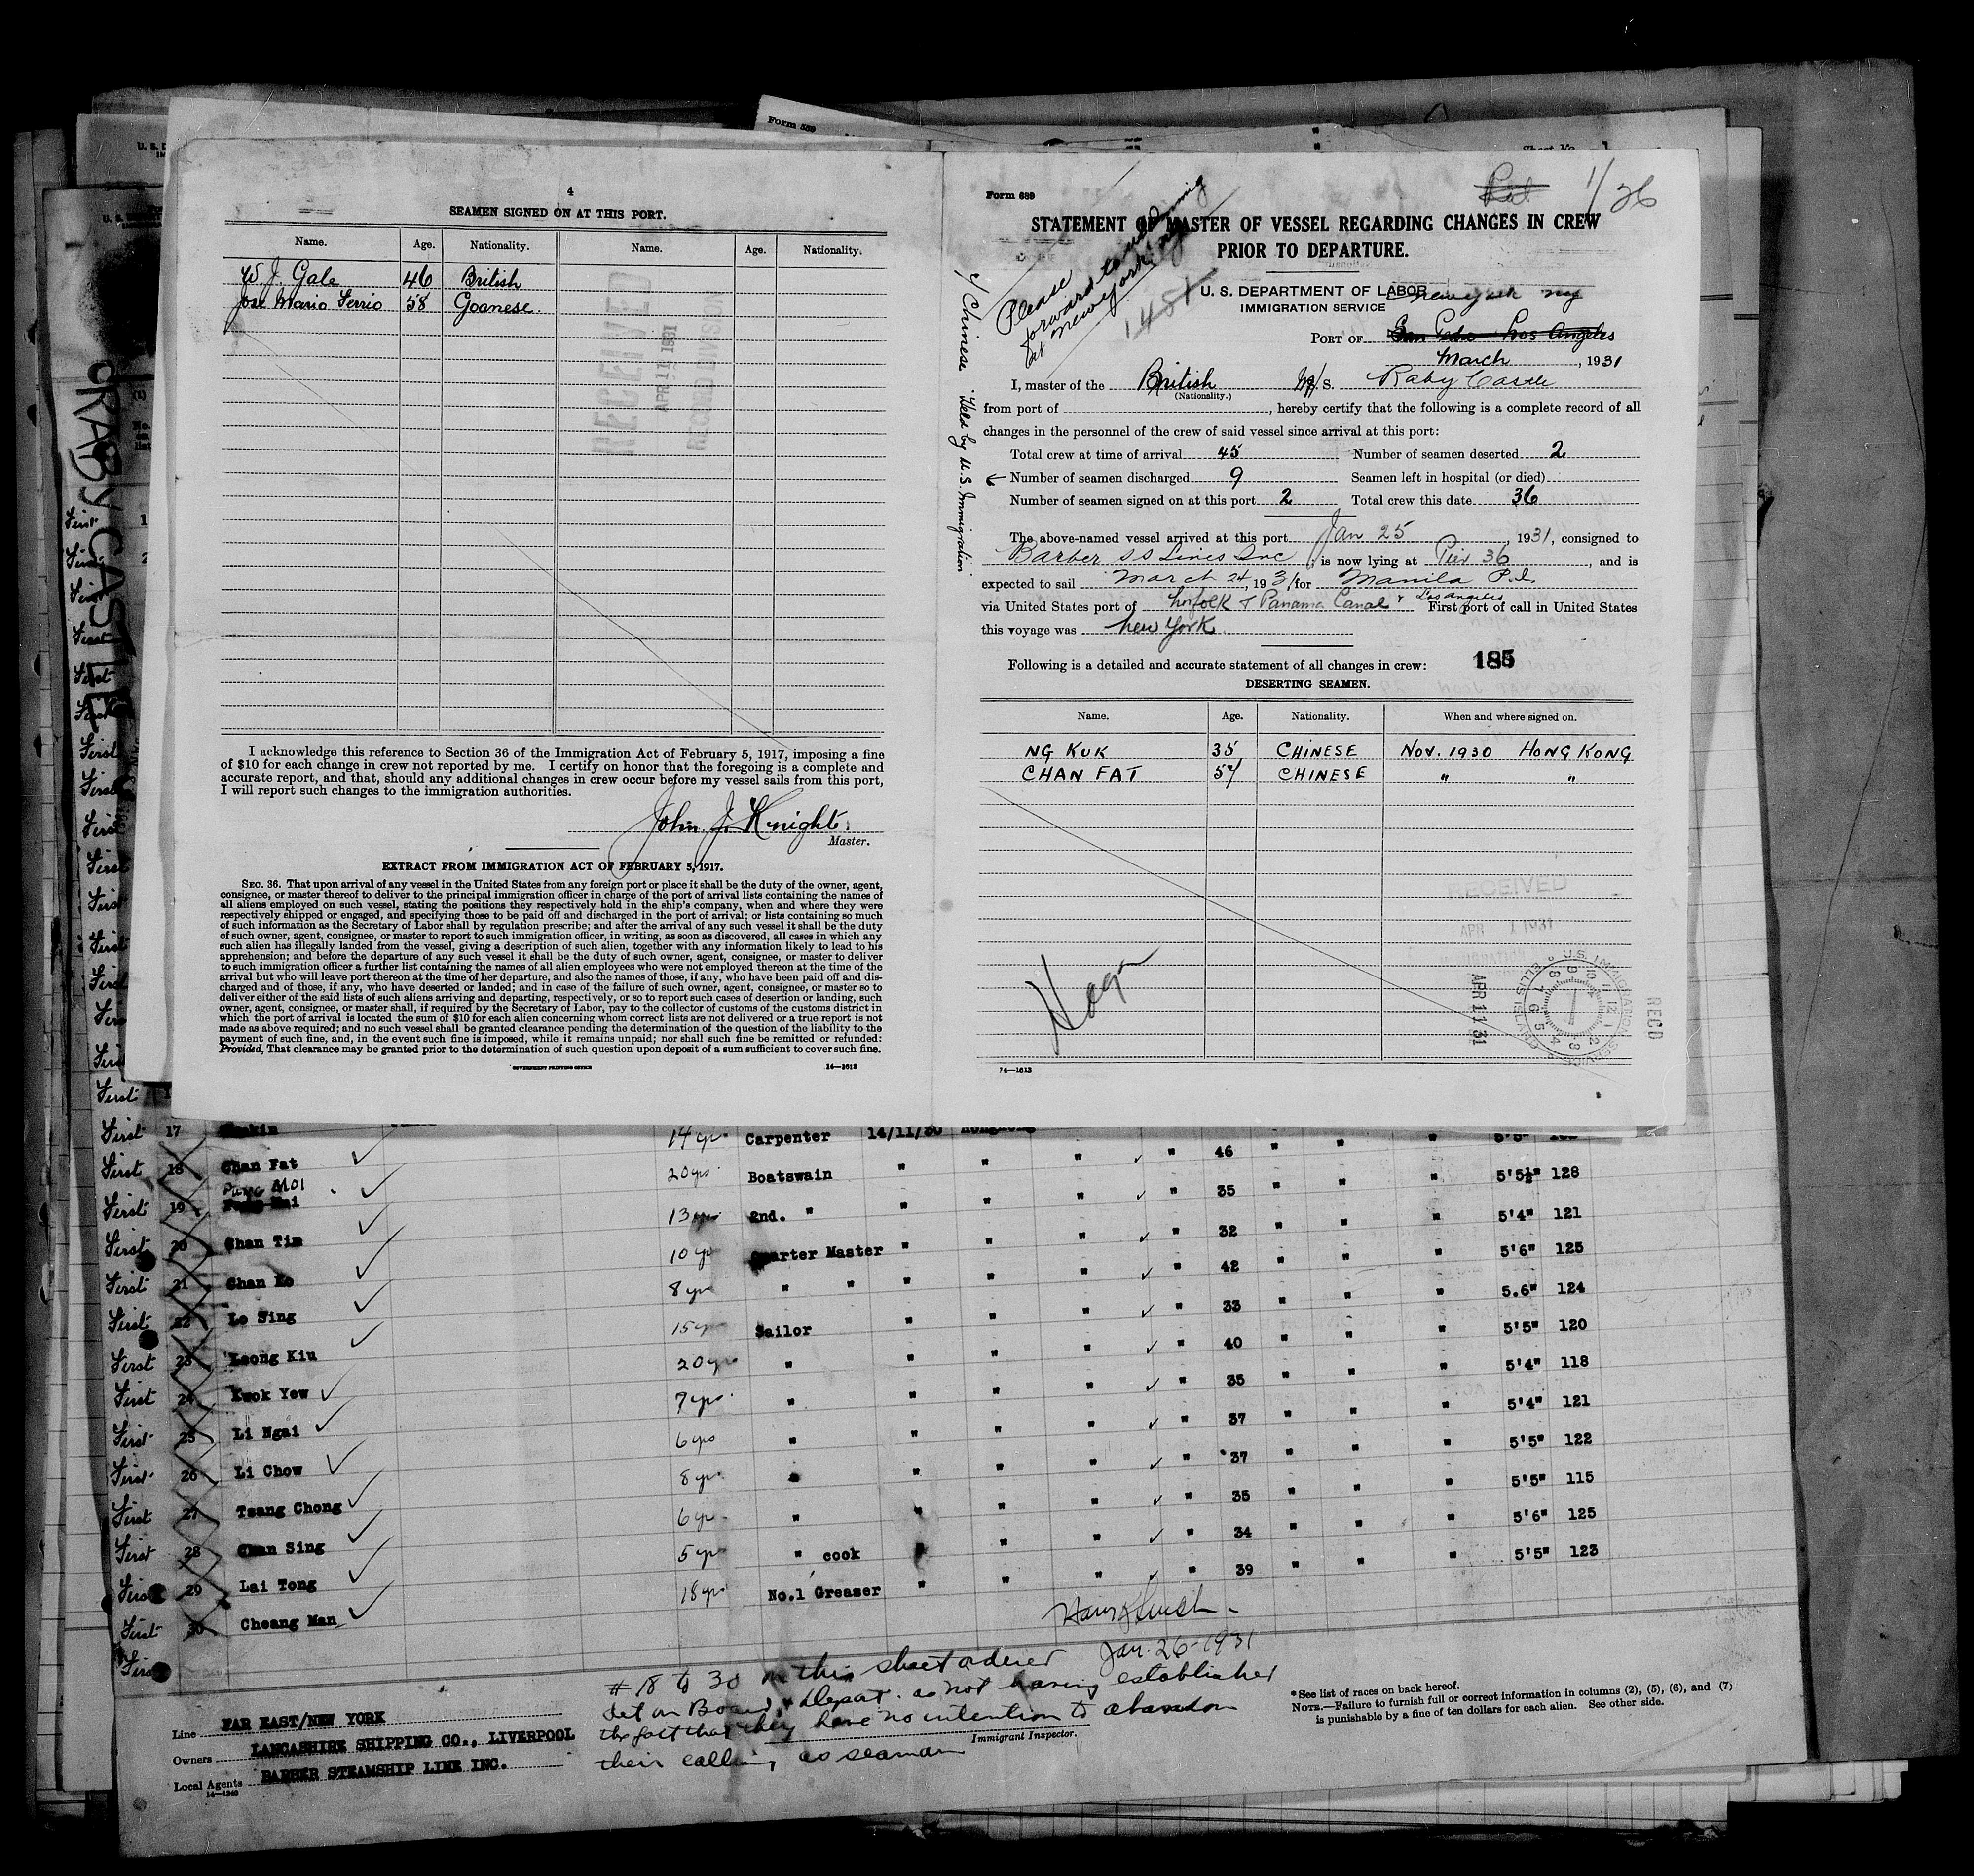 Form 589
Sheet No. 1
4
SEAMEN SIGNED ON AT THIS PORT.
Name. Age. Nationality. Name. Age. Nationality.
W. J. Gale 46 British
Jose Mario Serrio 58 Goanese.
RECEIVED
APR 11 1931
RECORD DIVISION
I acknowledge this reference to Section 36 of the Immigration Act of February 5, 1917, imposing a fine
of $10 for each change in crew not reported by me. I certify on honor that the foregoing is a complete and
accurate report, and that, should any additional changes in crew occur before my vessel sails from this port,
I will report such changes to the immigration authorities.
John J. Knight
Master.
EXTRACT FROM IMMIGRATION ACT OF FEBRUARY 5, 1917.
SEC. 36. That upon arrival of any vessel in the United States from any foreign port or place it shall be the duty of the owner, agent,
consignee, or master thereof to deliver to the principal immigration officer in charge of the port of arrival lists containing the names of
all aliens employed on such vessel, stating the positions they respectively hold in the ship's company, when and where they were
respectively shipped or engaged, and specifying those to be paid off and discharged in the port of arrival; or lists containing so much
of such information as the Secretary of Labor shall by regulation prescribe; and after the arrival of any such vessel it shall be the duty
of such owner, agent, consignee, or master to report to such immigration officer, in writing, as soon as discovered, all cases in which any
such alien has illegally landed from the vessel, giving a description of such alien, together with any information likely to lead to his
apprehension; and before the departure of any such vessel it shall be the duty of such owner, agent, consignee, or master to deliver
to such immigration officer a further list containing the names of all alien employees who were not employed thereon at the time of the
arrival but who will leave port thereon at the time of her departure, and also the names of those, if any, who have been paid off and dis-
charged and of those, if any, who have deserted or landed; and in case of the failure of such owner, agent, consignee, or master so to
deliver either of the said lists of such aliens arriving and departing, respectively, or so to report such cases of desertion or landing, such
owner, agent, consignee, or master shall, if required by the Secretary of Labor, pay to the collector of customs of the customs district in
which the port of arrival is located the sum of $10 for each alien concerning whom correct lists are not delivered or a true report is not
made as above required; and no such vessel shall be granted clearance pending the determination of the question of the liability to the
payment of such fine, and, in the event such fine is imposed, while it remains unpaid; nor shall such fine be remitted or refunded:
Provided, That clearance may be granted prior to the determination of such question upon deposit of a sum sufficient to cover such fine.
GOVERNMENT PRINTING OFFICE 14—1613
Form 689
1/26
STATEMENT OF MASTER OF VESSEL REGARDING CHANGES IN CREW
PRIOR TO DEPARTURE.
Please
forward to
at New York
1481
U. S. DEPARTMENT OF LABOR
IMMIGRATION SERVICE
New York NY
PORT OF San Pedro Los Angeles
March, 1931
I, master of the British M/S. Raby Castle
(Nationality.)
from port of , hereby certify that the following is a complete record of all
changes in the personnel of the crew of said vessel since arrival at this port:
Total crew at time of arrival 45 Number of seamen deserted 2
Number of seamen discharged 9 Seamen left in hospital (or died)
Number of seamen signed on at this port 2 Total crew this date 36
Chinese Held by U.S. Immigration
The above-named vessel arrived at this port Jan 25, 1931, consigned to
Barber SS Lines Inc; is now lying at Pier 36, and is
expected to sail March 24, 1931 for Manila P.I.
via United States port of Norfolk & Panama Canal & Los Angeles First port of call in United States
this voyage was New York
Following is a detailed and accurate statement of all changes in crew: 185
DESERTING SEAMEN.
Name. Age. Nationality. When and where signed on.
NG KUK 35 CHINESE NOV. 1930 HONG KONG
CHAN FAT 57 CHINESE " "
RECEIVED
APR 1 1931
APR 11 31
U.S. IMMIGRATION SERVICE ELLIS ISLAND
RECD
14—1613
RABY CASTLE
First 17 14 yrs Carpenter 14/11/30 Hongkong
First 18 Chan Fat 20 yrs Boatswain " " " " 46 " " " 5'5½" 128
First 19 Pung Moi 13 yrs 2nd. " " " " " 35 " " " 5'4" 121
First 20 Chan Tim 10 yrs Quarter Master " " " " 32 " " " 5'6" 125
First 21 Chan Ko 8 yrs " " " " " " 42 " " " 5.6" 124
First 22 Lo Sing 15 yrs Sailor " " " " 33 " " " 5'5" 120
First 23 Leong Kiu 20 yrs " " " " " 40 " " " 5'4" 118
First 24 Kwok Yew 7 yrs " " " " " 35 " " " 5'4" 121
First 25 Li Ngai 6 yrs " " " " " 37 " " " 5'5" 122
First 26 Li Chow 8 yrs " " " " " 37 " " " 5'5" 115
First 27 Tsang Chong 6 yrs " " " " " 35 " " " 5'6" 125
First 28 Chan Sing 5 yrs " cook " " " " 34 " " " 5'5" 123
First 29 Lai Tong 18 yrs No.1 Greaser " " " " 39 " "
First 30 Cheang Man
First
Jan. 26-1931
# 18 to 30 on this sheet ordered
det on Board & Deport. as not having established
the fact that they have no intention to abandon
their calling as seaman
Immigrant Inspector.
Line FAR EAST/NEW YORK
Owners LANCASHIRE SHIPPING CO., LIVERPOOL
Local Agents BARBER STEAMSHIP LINE INC.
14—1240
* See list of races on back hereof.
NOTE.—Failure to furnish full or correct information in columns (2), (5), (6), and (7)
is punishable by a fine of ten dollars for each alien. See other side.